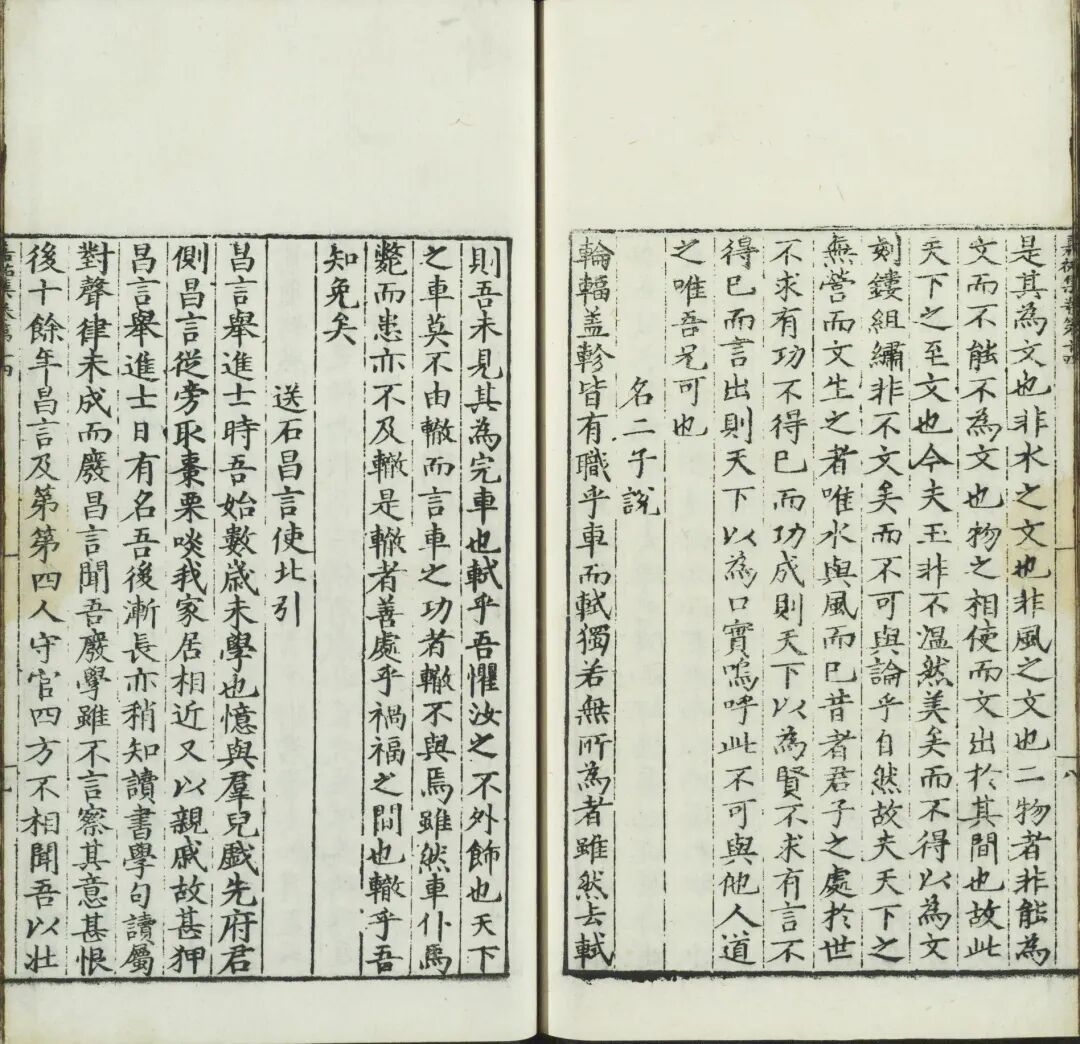 是其為文也非水之文也非風之文也二物者非能為
文而不能不為文也物之相使而文出於其間也故此
天下之至文也今夫玉非不溫然美矣而不得以為文
刻鏤組繡非不文矣而不可與論乎自然故夫天下之
無營而文生之者唯水與風而已昔者君子之處於世
不求有功不得已而功成則天下以為賢不求有言不
得已而言出則天下以為口實嗚呼此不可與他人道
之唯吾兄可也
名二子說
輪輻盖軫皆有職乎車而軾獨若無所為者雖然去軾
則吾未見其為完車也軾乎吾懼汝之不外飾也天下
之車莫不由轍而言車之功者轍不與焉雖然車仆馬
斃而患亦不及轍是轍者善處乎禍福之間也轍乎吾
知免矣
送石昌言使北引
昌言舉進士時吾始數歲未學也憶與羣兒戲先府君
側昌言從旁取棗栗啖我家居相近又以親戚故甚狎
昌言舉進士日有名吾後漸長亦稍知讀書學句讀屬
對聲律未成而廢昌言聞吾廢學雖不言察其意甚恨
後十餘年昌言及第第四人守官四方不相聞吾以壯